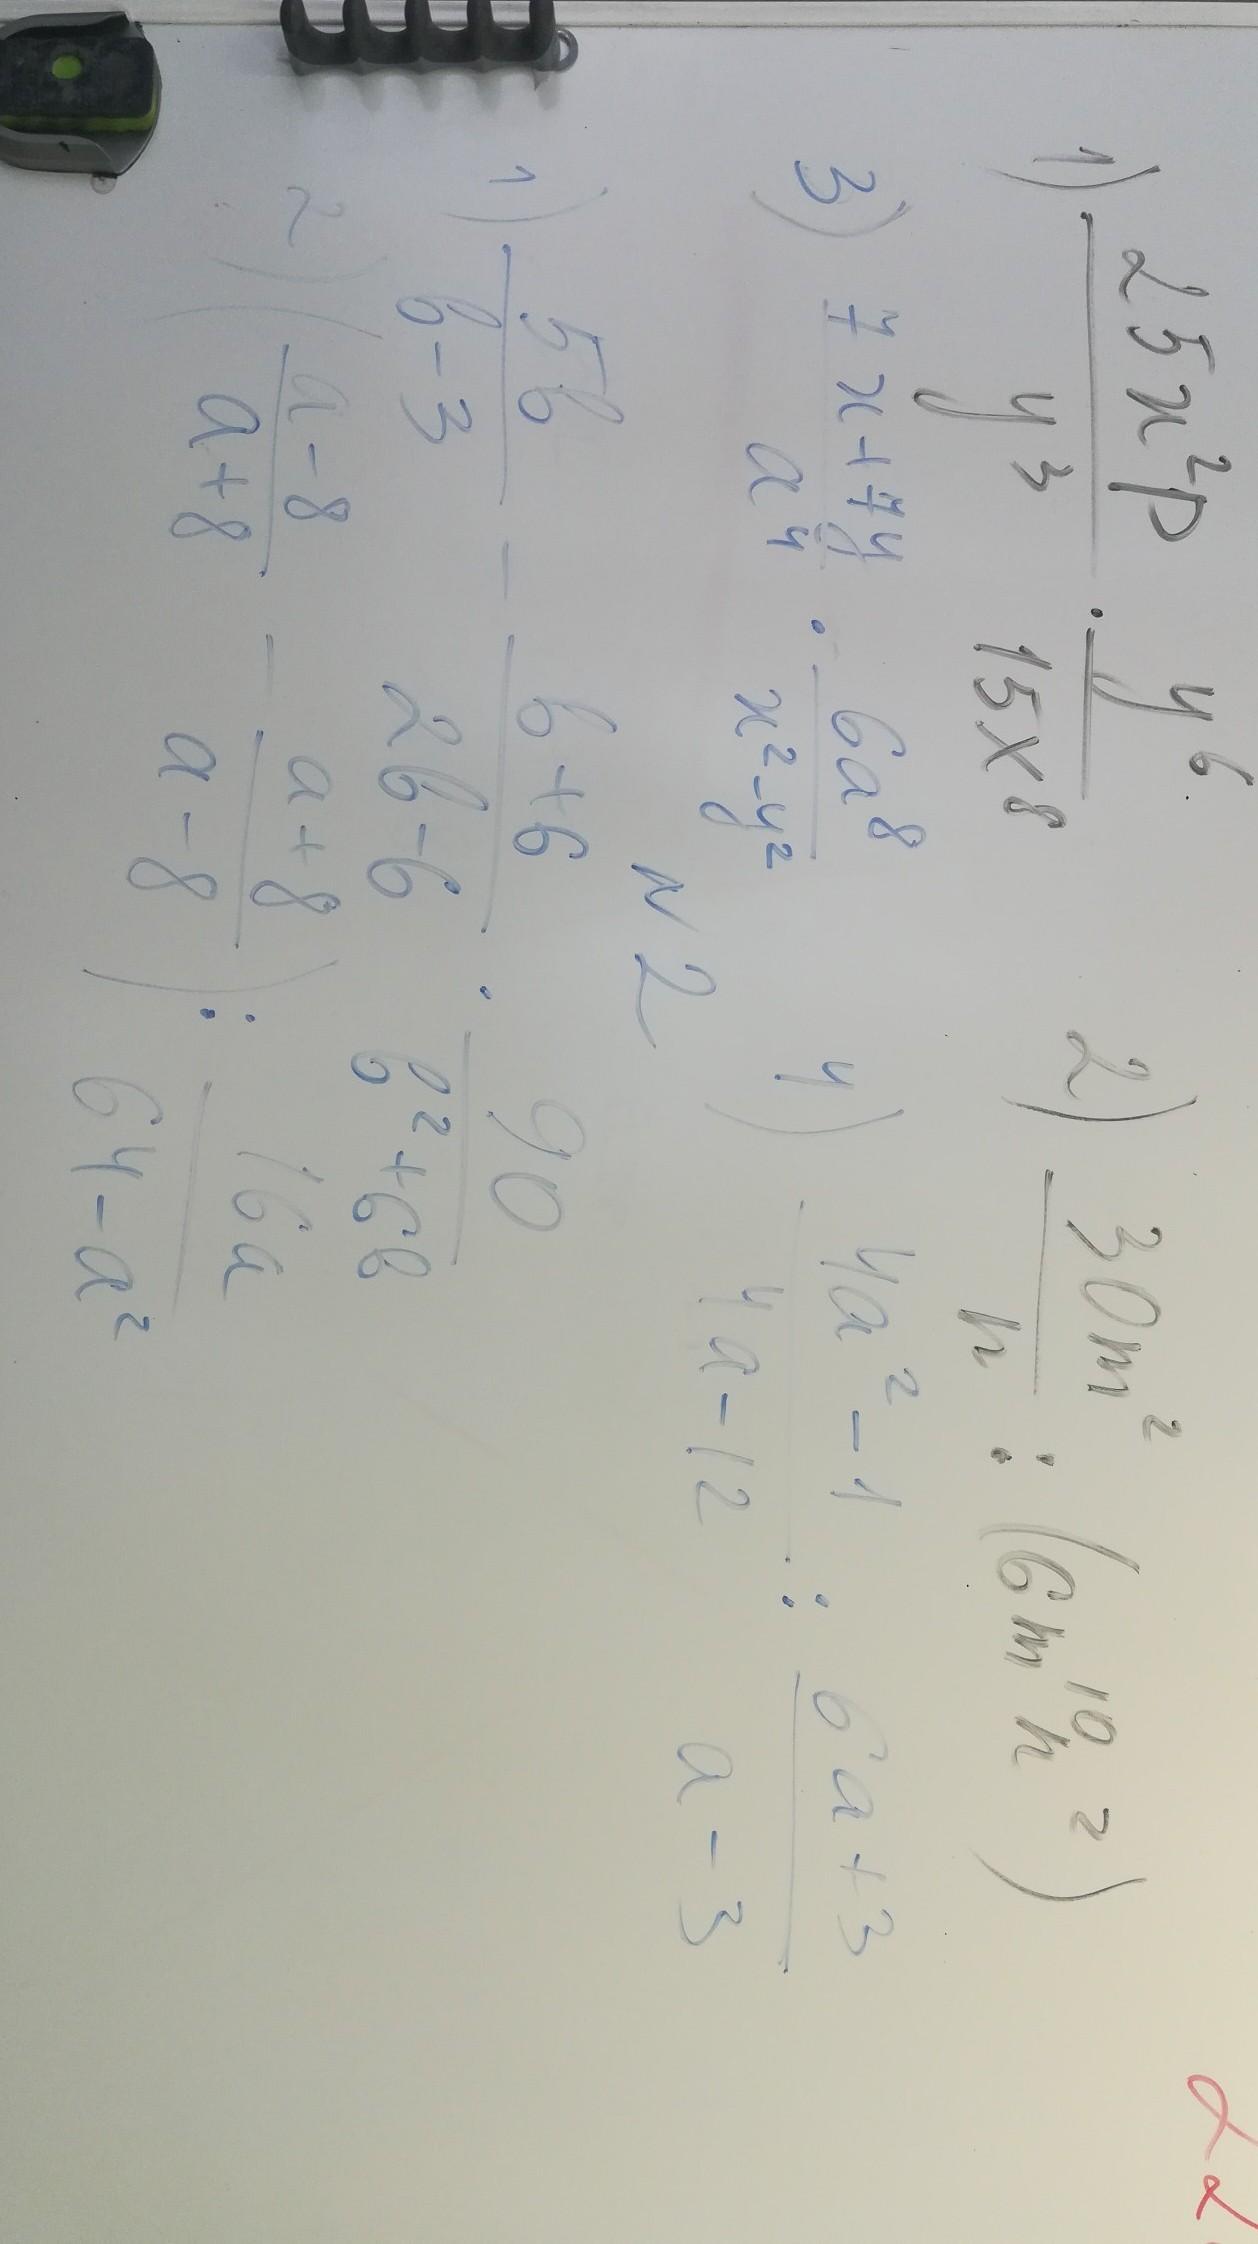 1) 25x²p / y³ · y⁶ / 15x⁸ 2) 30m² / n : (6m¹⁰n²)
3) 7x+7y / a⁴ · 6a⁸ / x²-y² 4) 4a²-1 / 4a-12 : 6a+3 / a-3
N2
1) 5b / b-3 - b+6 / 2b-6 · 90 / b²+6b
2) (a-8 / a+8 - a+8 / a-8) : 16a / 64-a²